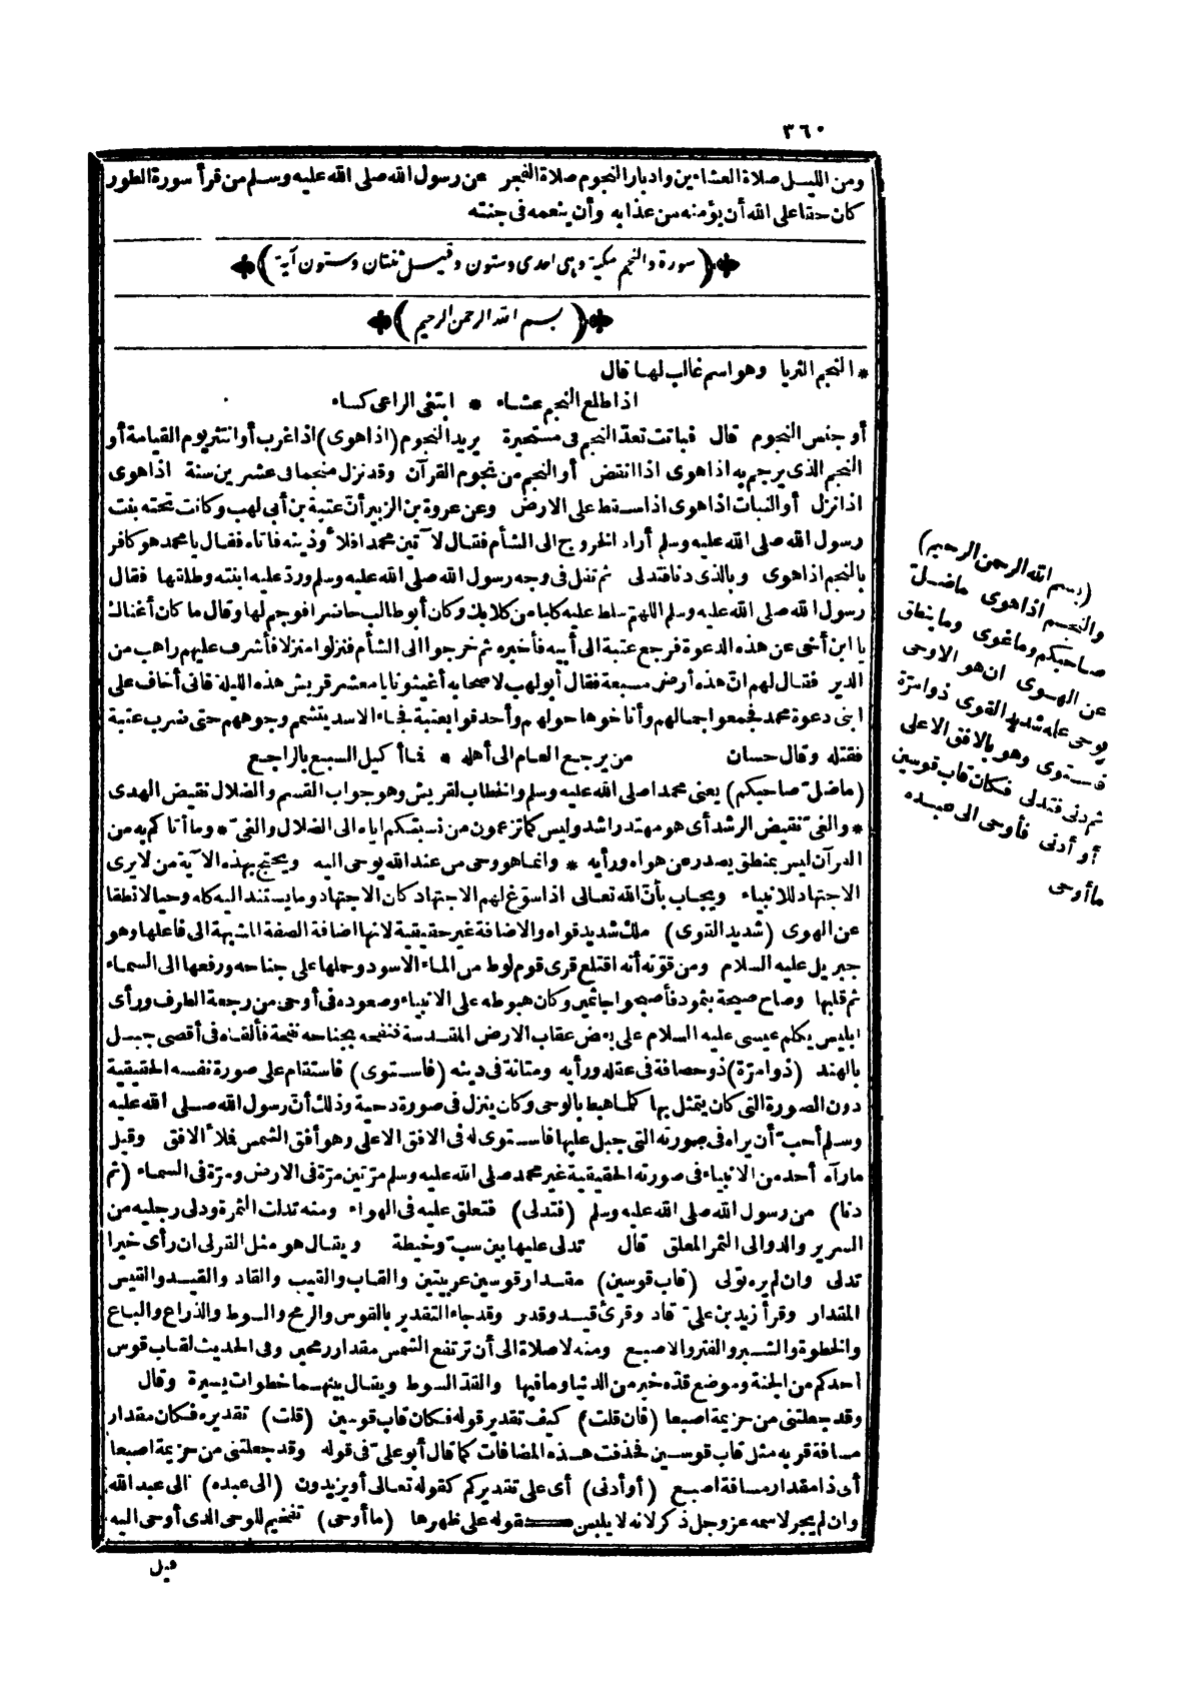 ٣٦٠
ومن الليل صلاة العشاءين وادبار النجوم صلاة الفجر عن رسول الله صلى الله عليه وسلم من قرأ سورة الطور
كان حقا على الله أن يؤمنه من عذابه وأن ينعمه فى جنته
(سورة والنجم مكية وهى احدى وستون وقيل ثنتان وستون آية)
(بسم الله الرحمن الرحيم)
* النجم الثريا وهو اسم غالب لها قال
اذا طلع النجم عشاء * ابتغى الراعى كساء
أو جنس النجوم قال فباتت تعدّ النجم فى مستحيرة يريد النجوم (اذا هوى) اذا غرب أو انتثر يوم القيامة أو
النجم الذى يرجم به اذا هوى اذا انقض أو النجم من نجوم القرآن وقد نزل منجما فى عشرين سنة اذا هوى
اذا نزل أو النبات اذا هوى اذا سقط على الارض وعن عروة بن الزبير أن عتبة بن أبى لهب وكانت تحته بنت
رسول الله صلى الله عليه وسلم أراد الخروج الى الشأم فقال لآتين محمدا فلأوذينه فأتاه فقال يا محمد هو كافر
بالنجم اذا هوى وبالذى دنا فتدلى ثم تفل فى وجه رسول الله صلى الله عليه وسلم وردّ عليه ابنته وطلقها فقال
رسول الله صلى الله عليه وسلم اللهم سلط عليه كلبا من كلابك وكان أبو طالب حاضرا فوجم لها وقال ما كان أغناك
يا ابن أخى عن هذه الدعوة فرجع عتبة الى أبيه فأخبره ثم خرجوا الى الشأم فنزلوا منزلا فأشرف عليهم راهب من
الدير فقال لهم انّ هذه أرض مسبعة فقال أبو لهب لاصحابه أغيثونا يا معشر قريش هذه الليلة فانى أخاف على
ابنى دعوة محمد فجمعوا جمالهم وأناخوها حولهم وأحدقوا بعتبة فجاء الاسد يتشمم وجوههم حتى ضرب عتبة
فقتله وقال حسان من يرجع العام الى أهله * فما أكيل السبع بالراجع
(ما ضلّ صاحبكم) يعنى محمدا صلى الله عليه وسلم والخطاب لقريش وهو جواب القسم والضلال نقيض الهدى
* والغىّ نقيض الرشد أى هو مهتد راشد وليس كما تزعمون من نسبتكم اياه الى الضلال والغىّ * وما أتاكم به من
القرآن ليس بمنطق يصدر عن هواه ورأيه * وانما هو وحى من عند الله يوحى اليه ويحتج بهذه الآية من لا يرى
الاجتهاد للانبياء ويجاب بأنّ الله تعالى اذا سوّغ لهم الاجتهاد كان الاجتهاد وما يستند اليه كله وحيا لا نطقا
عن الهوى (شديد القوى) ملك شديد قواه والاضافة غير حقيقية لانها اضافة الصفة المشبهة الى فاعلها وهو
جبريل عليه السلام ومن قوّته أنه اقتلع قرى قوم لوط من الماء الاسود وحملها على جناحه ورفعها الى السماء
ثم قلبها وصاح صيحة بثمود فأصبحوا جاثمين وكان هبوطه على الانبياء وصعوده فى أوحى من رجعة الطرف ورأى
ابليس يكلم عيسى عليه السلام على بعض عقاب الارض المقدسة فنفحه بجناحه نفحة فألقاه فى أقصى جبل
بالهند (ذو مرّة) ذو حصافة فى عقله ورأيه ومتانة فى دينه (فاستوى) فاستقام على صورة نفسه الحقيقية
دون الصورة التى كان يتمثل بها كلما هبط بالوحى وكان ينزل فى صورة دحية وذلك أنّ رسول الله صلى الله عليه
وسلم أحبّ أن يراه فى صورته التى جبل عليها فاستوى له فى الافق الاعلى وهو أفق الشمس فملأ الافق وقيل
ما رآه أحد من الانبياء فى صورته الحقيقية غير محمد صلى الله عليه وسلم مرّتين مرّة فى الارض ومرّة فى السماء (ثم
دنا) من رسول الله صلى الله عليه وسلم (فتدلى) فتعلق عليه فى الهواء ومنه تدلت الثمرة ودلى رجليه من
السرير والدوالى الثمر المعلق قال تدلى عليها بين سبّ وخيطة ويقال هو مثل القرلى ان رأى خيرا
تدلى وان لم يره تولى (قاب قوسين) مقدار قوسين عربيتين والقاب والقيب والقاد والقيد والقيس
المقدار وقرأ زيد بن علىّ قاد وقرئ قيد وقدر وقد جاء التقدير بالقوس والرمح والسوط والذراع والباع
والخطوة والشبر والفتر والاصبع ومنه لا صلاة الى أن ترتفع الشمس مقدار رمحين وفى الحديث لقاب قوس
أحدكم من الجنة وموضع قدّه خير من الدنيا وما فيها والقدّ السوط ويقال بينهما خطوات يسيرة وقال
وقد جعلتنى من حزيمة اصبعا (فان قلت) كيف تقدير قوله فكان قاب قوسين (قلت) تقديره فكان مقدار
مسافة قربه مثل قاب قوسين فحذفت هذه المضافات كما قال أبو علىّ فى قوله وقد جعلتنى من حزيمة اصبعا
أى ذا مقدار مسافة اصبع (أو أدنى) أى على تقديركم كقوله تعالى أو يزيدون (الى عبده) الى عبد الله
وان لم يجر لاسمه عز وجل ذكر لانه لا يلبس كقوله على ظهرها (ما أوحى) تفخيم للوحى الذى أوحى اليه
قيل
(بسم الله الرحمن الرحيم)
والنجم اذا هوى ما ضلّ
صاحبكم وما غوى وما ينطق
عن الهوى ان هو الا وحى
يوحى علمه شديد القوى ذو مرّة
فاستوى وهو بالافق الاعلى
ثم دنى فتدلى فكان قاب قوسين
أو أدنى فأوحى الى عبده
ما أوحى